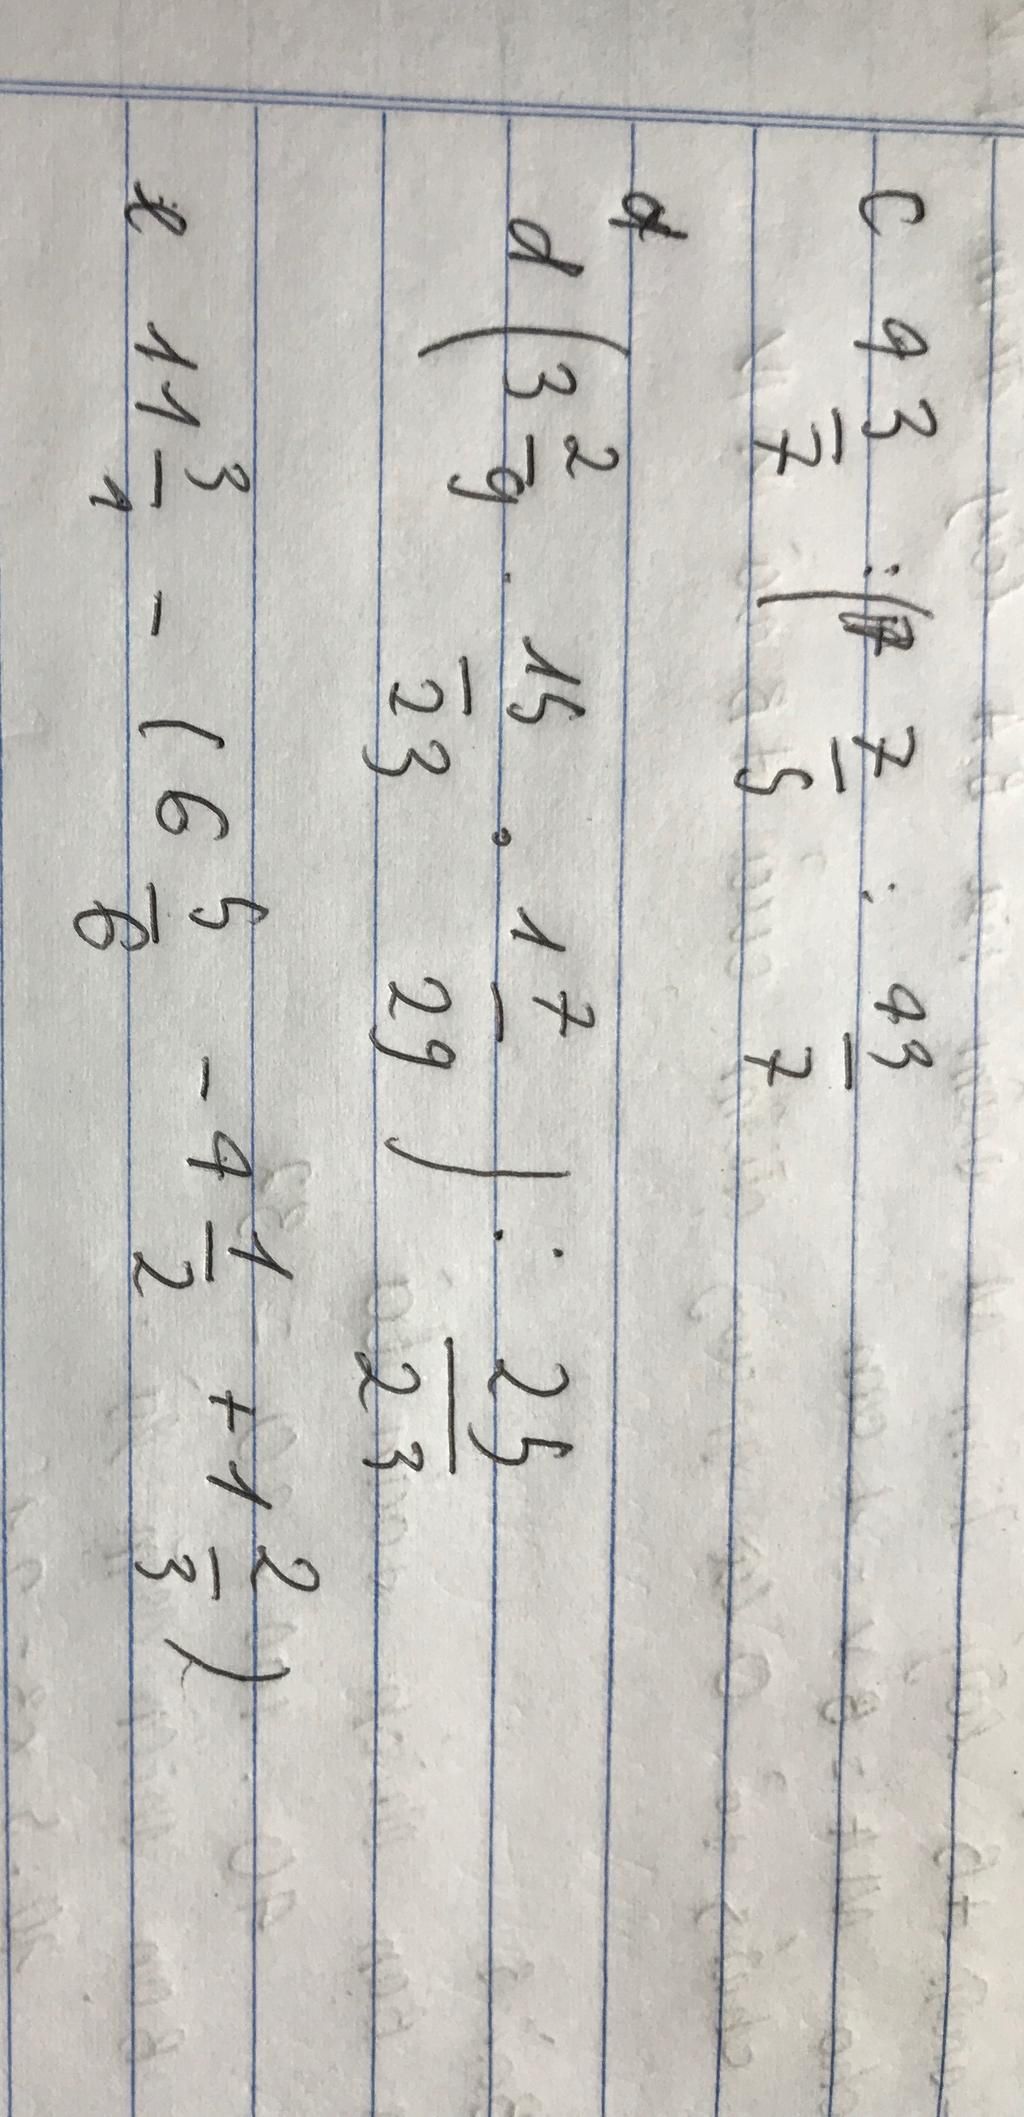 c 4 3/7 : ( 7/5 : 43/7
d
d ( 3 2/9 . 15/23 . 1 7/29 ) : 25/23
e 11 3/1 - ( 6 5/6 - 4 1/2 + 1 2/3 )